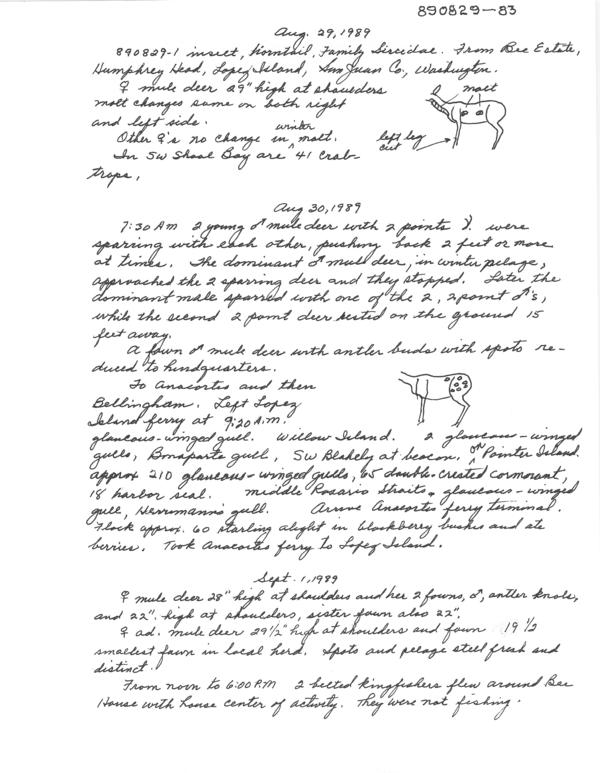 890829-83
Aug. 29, 1989
890829-1 insect, Horntail, Family Siricidae. From Bee Estate,
Humphrey Head, Lopez Island, San Juan Co., Washington.
♀ mule deer 29" high at shoulders
molt changes same on both right
and left side.
molt
Other ♀'s no change in winter molt.
left leg
cut
In SW Shoal Bay are 41 crab-
traps.
Aug 30, 1989
7:30 AM 2 young ♂ mule deer with 2 points Y. were
sparring with each other, pushing back 2 feet or more
at times. The dominant ♂ mule deer, in winter pelage,
approached the 2 sparring deer and they stopped. Later the
dominant male sparred with one of the 2, 2 point ♂'s,
while the second 2 point deer rested on the ground 15
feet away.
A fawn ♂ mule deer with antler buds with spots re-
duced to hindquarters.
To Anacortes and then
Bellingham. Left Lopez
Island ferry at 9:20 A.M.
glaucous-winged gull. Willow Island. 2 glaucous-winged
gulls, Bonaparte gull, SW Blakely at beacon, on Pointer Island.
approx 210 glaucous-winged gulls, 65 double-crested cormorant,
18 harbor seal. middle Rosario Straits. glaucous-winged
gull, Heermann's gull. Arrive Anacortes ferry terminal.
Flock approx. 60 starling alight in blackberry bushes and ate
berries. Took Anacortes ferry to Lopez Island.
Sept. 1, 1989
♀ mule deer 28" high at shoulders and her 2 fawns, ♂, antler knobs,
and 22" high at shoulders, sister fawn also 22".
♀ ad. mule deer 29 1/2" high at shoulders and fawn 19 1/2
smallest fawn in local herd. Spots and pelage still fresh and
distinct.
From noon to 6:00 PM 2 belted kingfishers flew around Bee
House with house center of activity. They were not fishing.